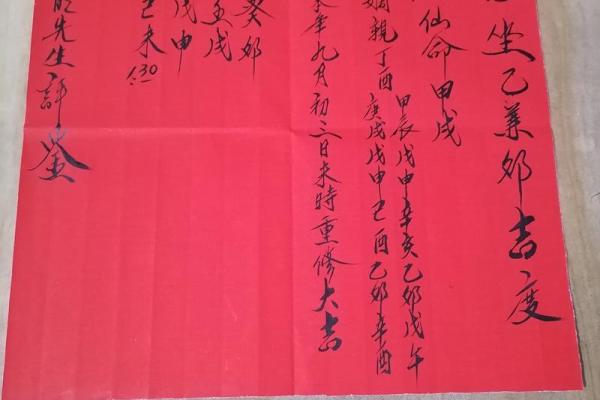 坐乙兼卯吉度
仙命甲戌
親丁酉
甲辰戊申辛亥乙卯戊午
庚戌戊申己酉乙卯辛酉
年九月初三日未時重修大吉
癸卯
戌
戊申
己未
先生評鑒